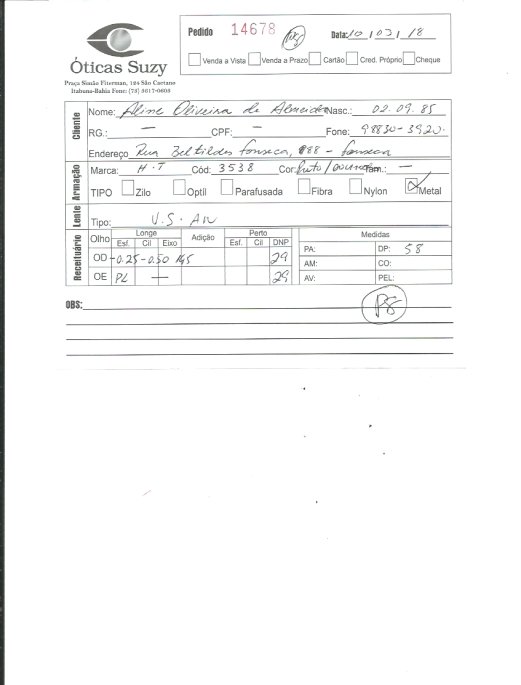 Óticas Suzy
Praça Simão Fiterman, 124 São Caetano
Itabuna-Bahia Fone: (73) 3617-0603
Pedido 14678 Data: 10/03/18
Venda a Vista Venda a Prazo Cartão Créd. Próprio Cheque
Cliente
Nome: Aline Oliveira de Almeida Nasc.: 02.09.85
RG.: — CPF: — Fone: 98830-3920.
Endereço Rua Beltildes Fonseca, 88 - Fonseca
Armação
Marca: H.T Cód: 3538 Cor: Preto/Dourado Tam.: —
TIPO Zilo Optil Parafusada Fibra Nylon Metal
Lente
Tipo: V.S. AR
Receituário
Olho Longe Adição Perto Medidas
Esf. Cil Eixo Esf. Cil DNP
PA: DP: 58
OD -0.25 -0.50 165 29
AM: CO:
OE PL — 29
AV: PEL:
OBS: